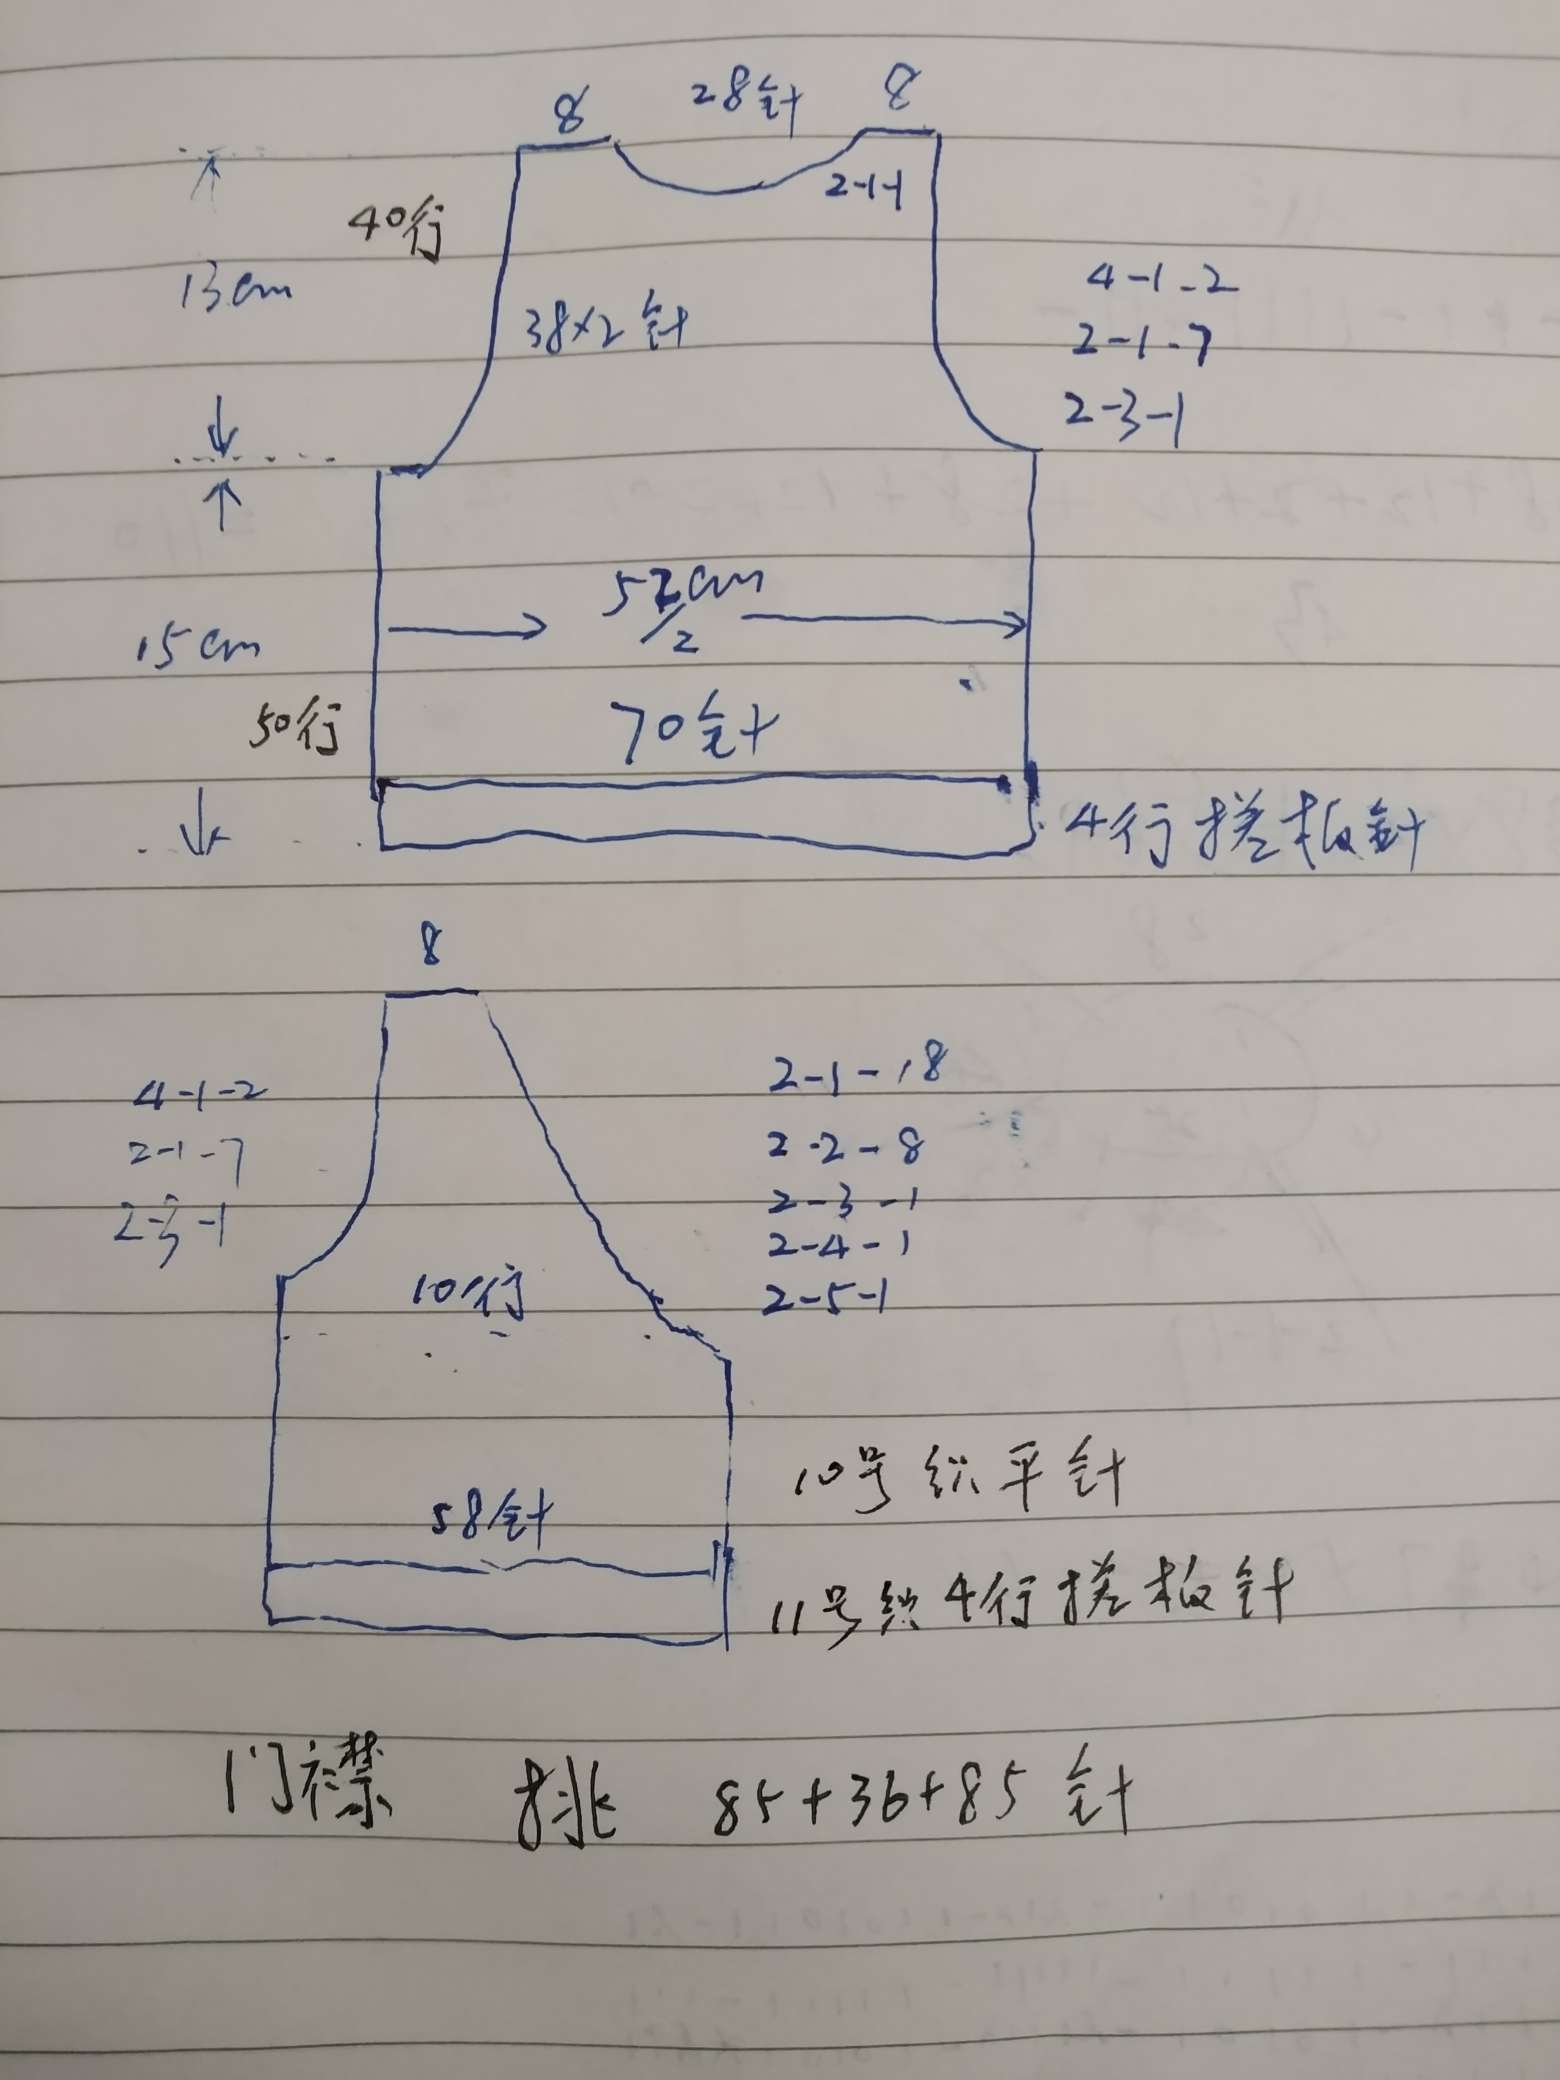 8 28针 8
2-1-1
40行
13cm
38×2针
4-1-2
2-1-7
2-3-1
52cm/2
15cm
70针
50行
4行搓板针
8
4-1-2
2-1-7
2-3-1
2-1-18
2-2-8
2-3-1
2-4-1
2-5-1
10行
10号织平针
58针
11号织4行搓板针
门襟 挑 85+36+85针